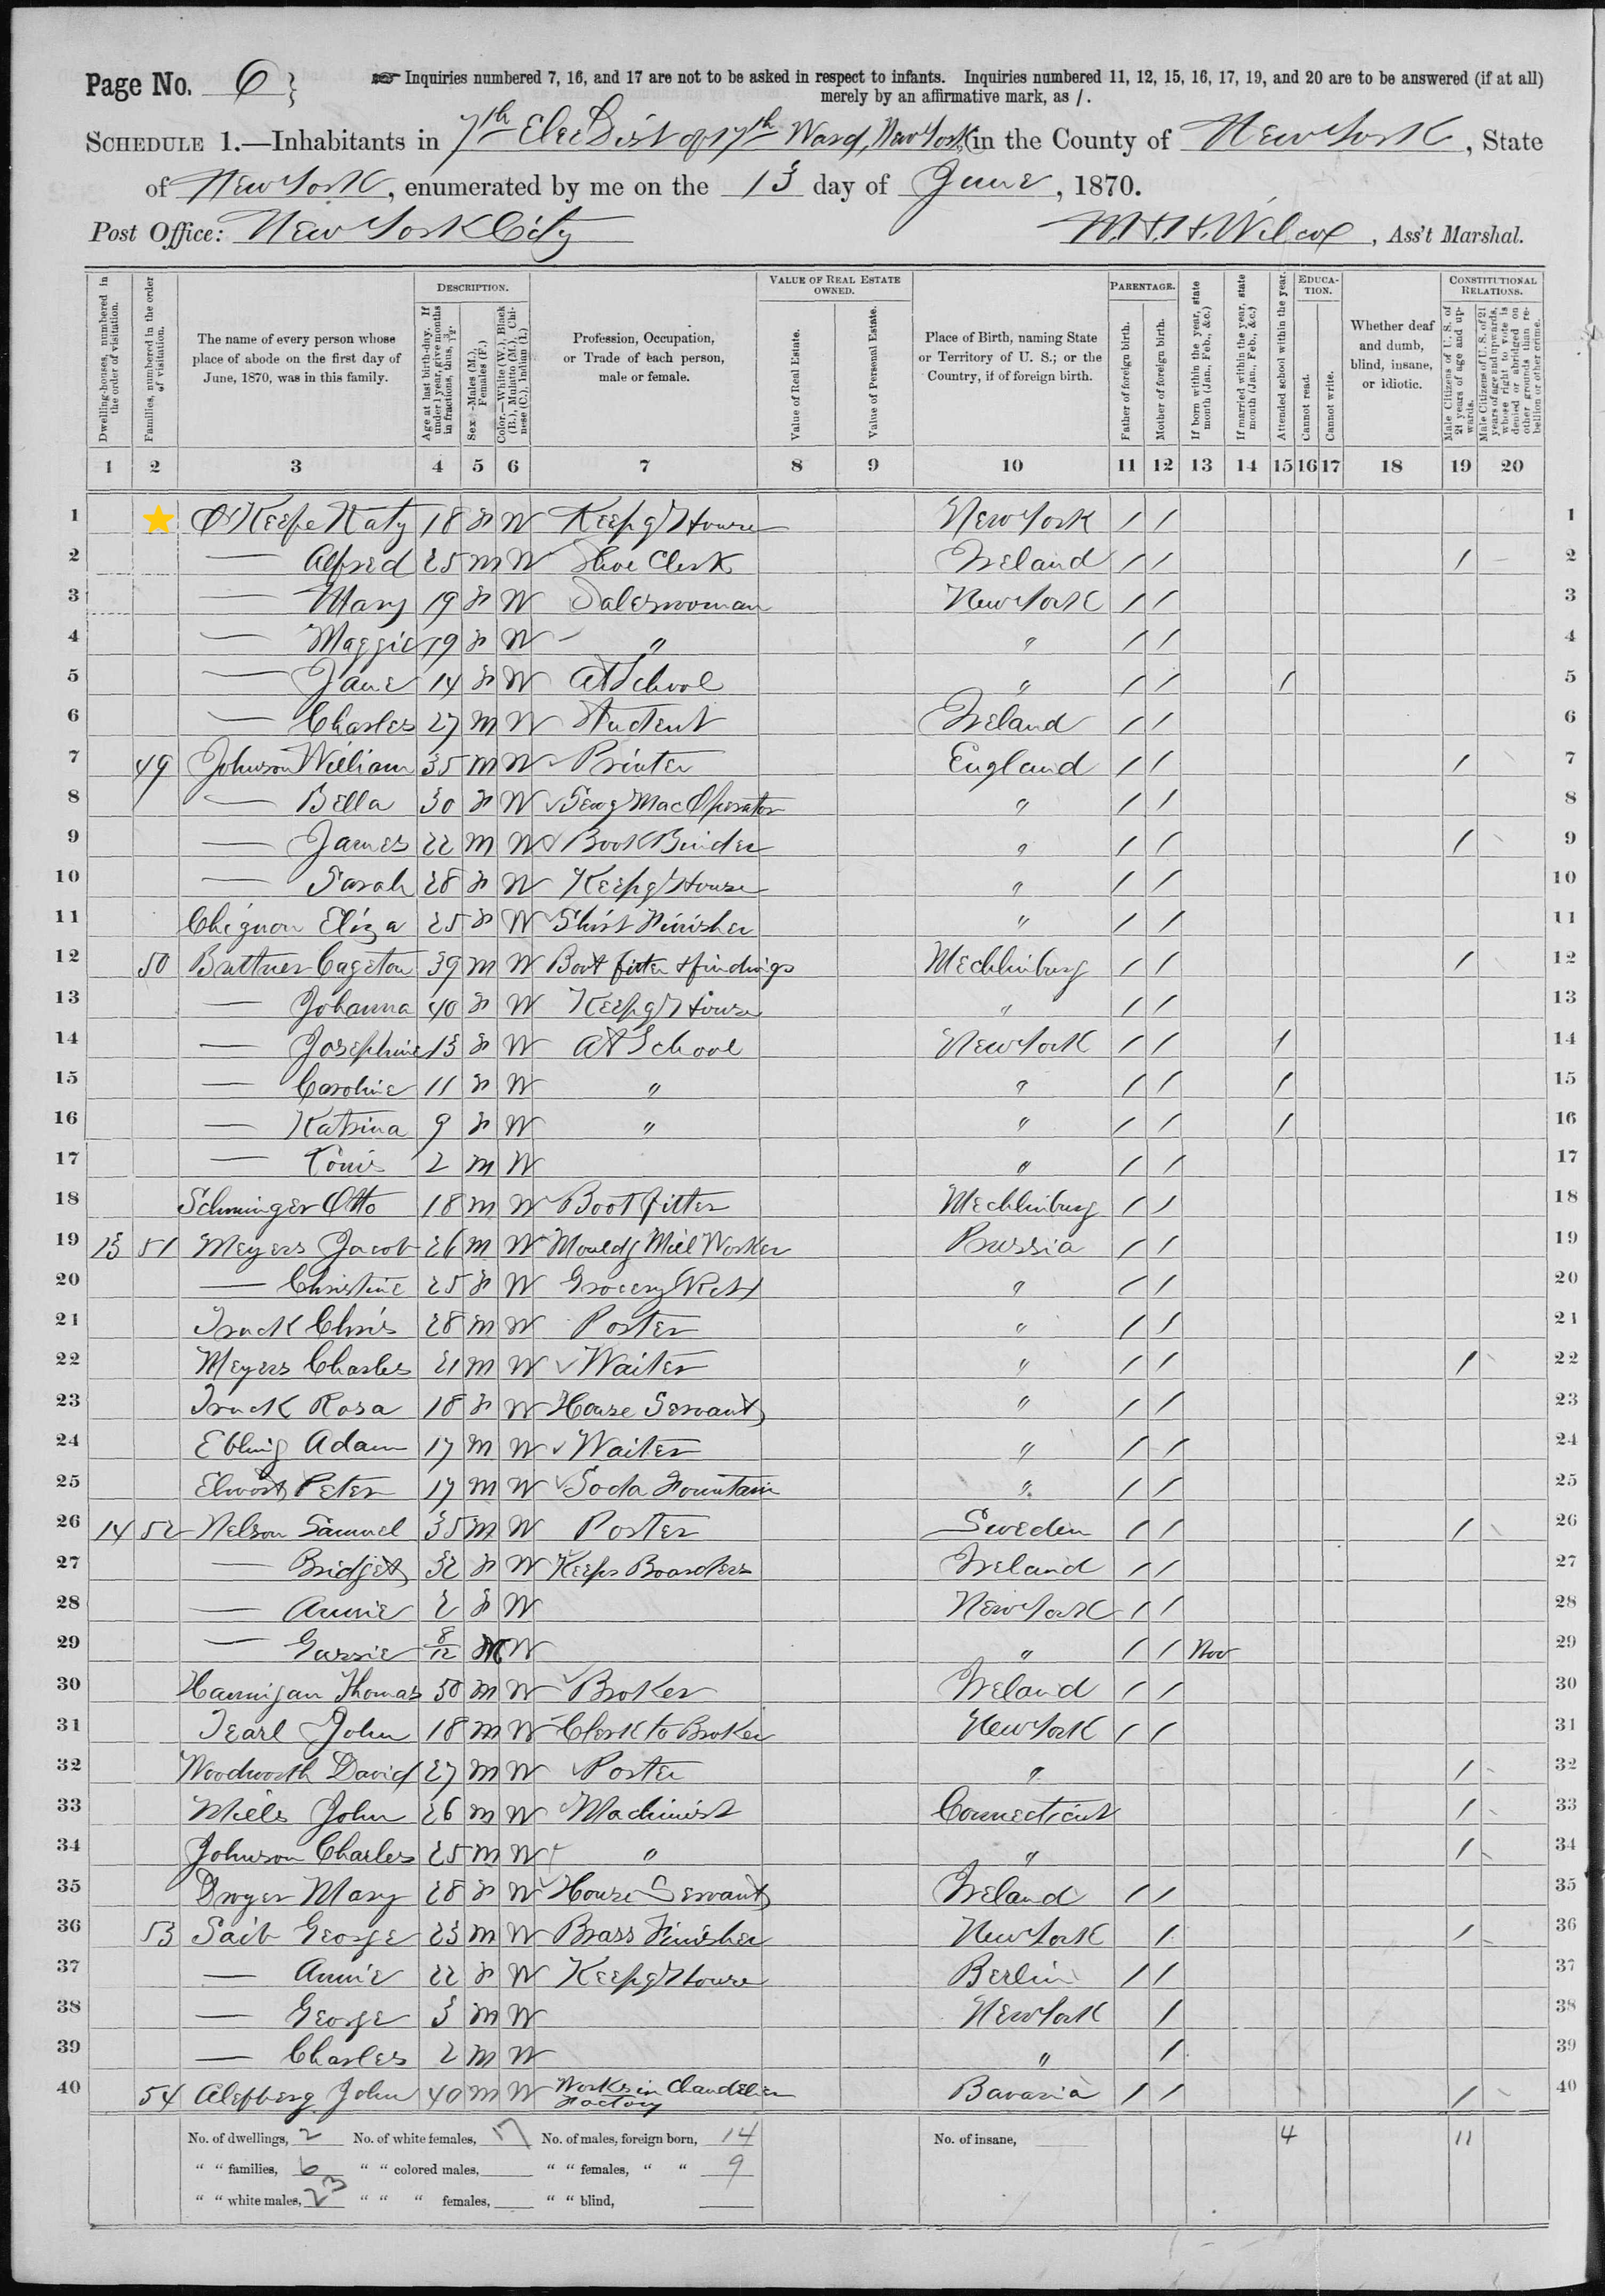 Page No. 6 } Inquiries numbered 7, 16, and 17 are not to be asked in respect to infants. Inquiries numbered 11, 12, 15, 16, 17, 19, and 20 are to be answered (if at all)
merely by an affirmative mark, as /.
SCHEDULE 1.—Inhabitants in 7th Elec Dist of 17th Ward, New York, in the County of New York, State
of New York, enumerated by me on the 13 day of June, 1870.
Post Office: New York City W. H. H. Wilcox, Ass't Marshal.
Dwelling-houses, numbered in the order of visitation.
Families, numbered in the order of visitation.
The name of every person whose place of abode on the first day of June, 1870, was in this family.
DESCRIPTION.
Age at last birth-day. If under 1 year, give months in fractions, thus, 3/12.
Sex—Males (M.), Females (F.)
Color.—White (W.), Black (B.), Mulatto (M.), Chinese (C.), Indian (I.)
Profession, Occupation, or Trade of each person, male or female.
VALUE OF REAL ESTATE OWNED.
Value of Real Estate.
Value of Personal Estate.
Place of Birth, naming State or Territory of U. S.; or the Country, if of foreign birth.
PARENTAGE.
Father of foreign birth.
Mother of foreign birth.
If born within the year, state month (Jan., Feb., &c.)
If married within the year, state month (Jan., Feb., &c.)
Attended school within the year.
EDUCATION.
Cannot read.
Cannot write.
Whether deaf and dumb, blind, insane, or idiotic.
CONSTITUTIONAL RELATIONS.
Male Citizens of U. S. of 21 years of age and upwards.
Male Citizens of U. S. of 21 years of age and upwards, whose right to vote is denied or abridged on other grounds than rebellion or other crime.
1 2 3 4 5 6 7 8 9 10 11 12 13 14 15 16 17 18 19 20
1 O'Keefe Katy 18 F W Keepg House New York / / 1
2 — Alfred 25 M W Shoe Clerk Ireland / / / 2
3 — Mary 19 F W Saleswoman New York / / 3
4 — Maggie 19 F W " " / / 4
5 — Jane 14 F W At School " / / / 5
6 — Charles 27 M W Student Ireland / / 6
7 49 Johnson William 35 M W Printer England / / / 7
8 — Bella 30 F W Sewg Mac Operator " / / 8
9 — James 22 M W Book Binder " / / / 9
10 — Sarah 28 F W Keepg House " / / 10
11 Chignon Eliza 25 F W Shirt Finisher " / / 11
12 50 Buttner Cageton 39 M W Boot fitter & findings Mecklinburg / / / 12
13 — Johanna 40 F W Keepg House " / / 13
14 — Josephine 13 F W At School New York / / / 14
15 — Caroline 11 F W " " / / / 15
16 — Katrina 9 F W " " / / / 16
17 — Louis 2 M W " / / 17
18 Schminger Otto 18 M W Boot fitter Mecklinburg / / 18
19 13 51 Meyers Jacob 26 M W Mouldg Mill Worker Prussia / / 19
20 — Christine 25 F W Grocery (Ret) " / / 20
21 Truck Chris 28 M W Porter " / / 21
22 Meyers Charles 21 M W Waiter " / / / 22
23 Truck Rosa 18 F W House Servant " / / 23
24 Ebling Adam 17 M W Waiter " / / 24
25 Peter 17 M W Soda Fountain " / / 25
26 14 52 Nelson Samuel 35 M W Porter Sweden / / / 26
27 — Bridget 32 F W Keeps Boarders Ireland / / 27
28 — Annie 2 F W New York / / 28
29 — Gussie 8/12 M W " / / Nov 29
30 Hannigan Thomas 50 M W Broker Ireland / / 30
31 Tearl John 18 M W Clerk to Broker New York / / 31
32 Woodworth David 27 M W Porter " / 32
33 Mills John 26 M W Machinist Connecticut / 33
34 Johnson Charles 25 M W " " / 34
35 Dwyer Mary 28 F W House Servant Ireland / / 35
36 53 Saib George 23 M W Brass Finisher New York / / 36
37 — Annie 22 F W Keepg House Berlin / / 37
38 — George 3 M W New York / 38
39 — Charles 2 M W " / 39
40 54 John 40 M W Works in Chandelier Factory Bavaria / / / 40
No. of dwellings, 2 No. of white females, 17 No. of males, foreign born, 14 No. of insane, 4 11
" " families, 6 " " colored males, " " females, " " 9
" " white males, 23 " " " females, " " blind,